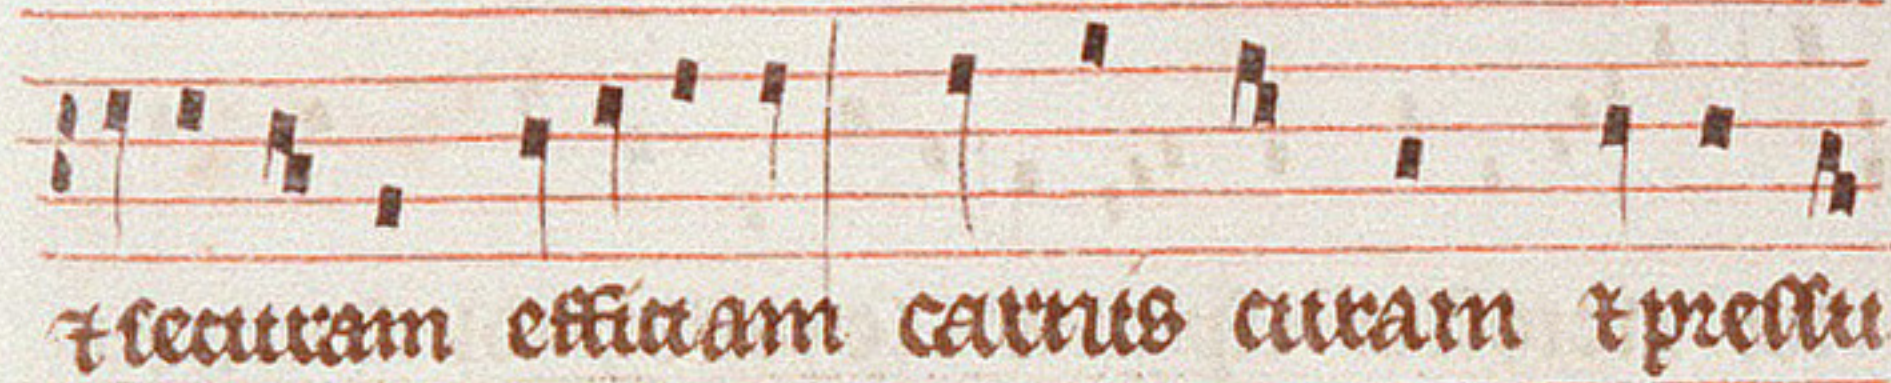 ⁊ securam efficiam carnis curam ⁊ pressu